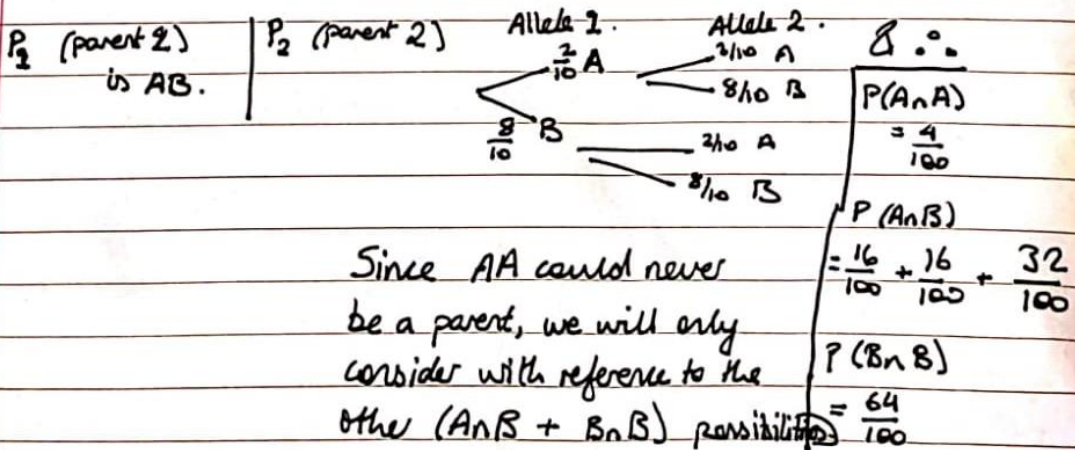 P1 (parent 1)
is AB.
P2 (parent 2)
Allele 1.
Allele 2.
2/10 A
2/10 A
8/10 B
8/10 B
2/10 A
8/10 B
& ∴
P(A∩A)
= 4/100
P(A∩B)
= 16/100 + 16/100 + 32/100
P(B∩B)
= 64/100
Since AA could never
be a parent, we will only
consider with reference to the
other (A∩B + B∩B) possibilities